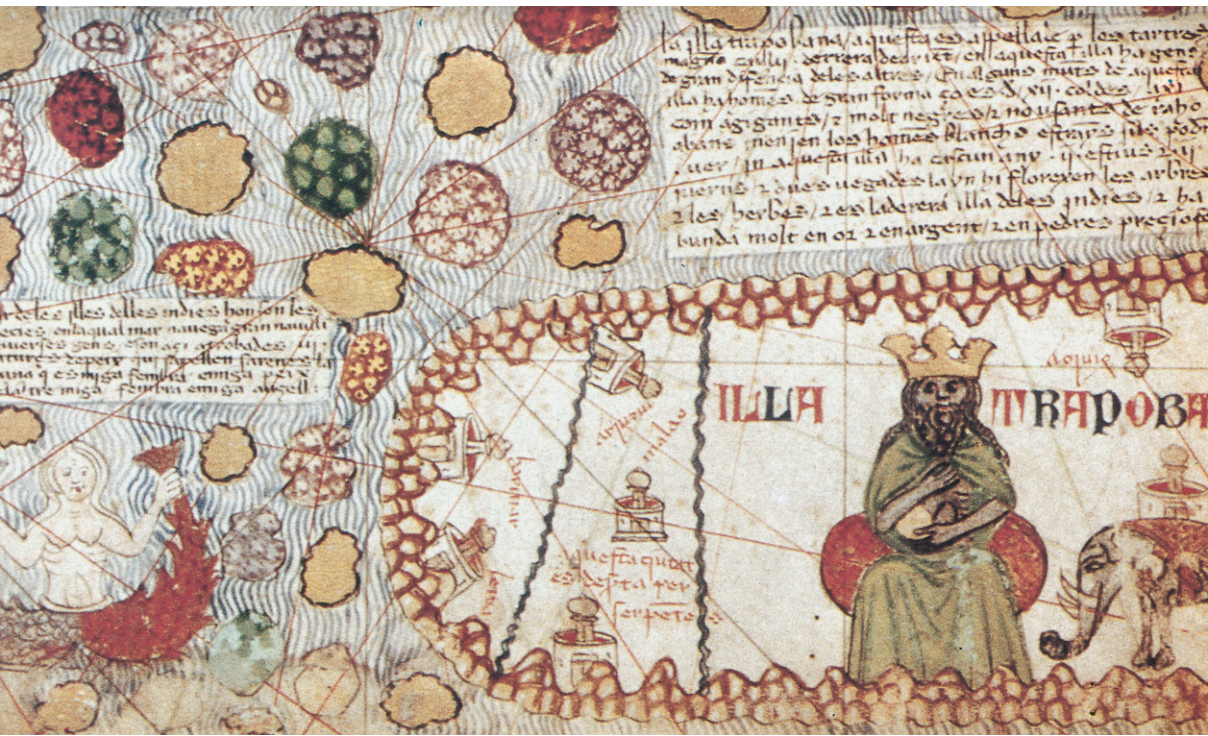 la illa trapobana / aquesta es appellade p los tartres
magno caulij . derrera de oriēt / en aquesta illa ha gens
de gran difencia deles altres / En alguns munts de aquesta
illa ha homēs de gran forma ço es d xij . coldes / axi
com agigants / z molt negres / z no usants de raho
abans menjen los homēs blanchs estrayns sils podē
auer / in aquesta illa ha cascun any . ij . estius z ij
iuerns z dues uegades la yn hi florexen los arbres
z les herbes / z es la derera illa deles jndies / z ha
bunda molt en or z en argent / z en pedres precios
deles illes delles indies hon son les
ecies en laqual mar nauega gran nauili
uerses gens / E son açi atrobades iij
natures de peix qui sapellen sarenes la
una q es miga fembra e miga peix
laltre miga fembra e miga aucell :
ILLA TRAPOBA
malao
aquesta ciutat
es deserta per
serpētes